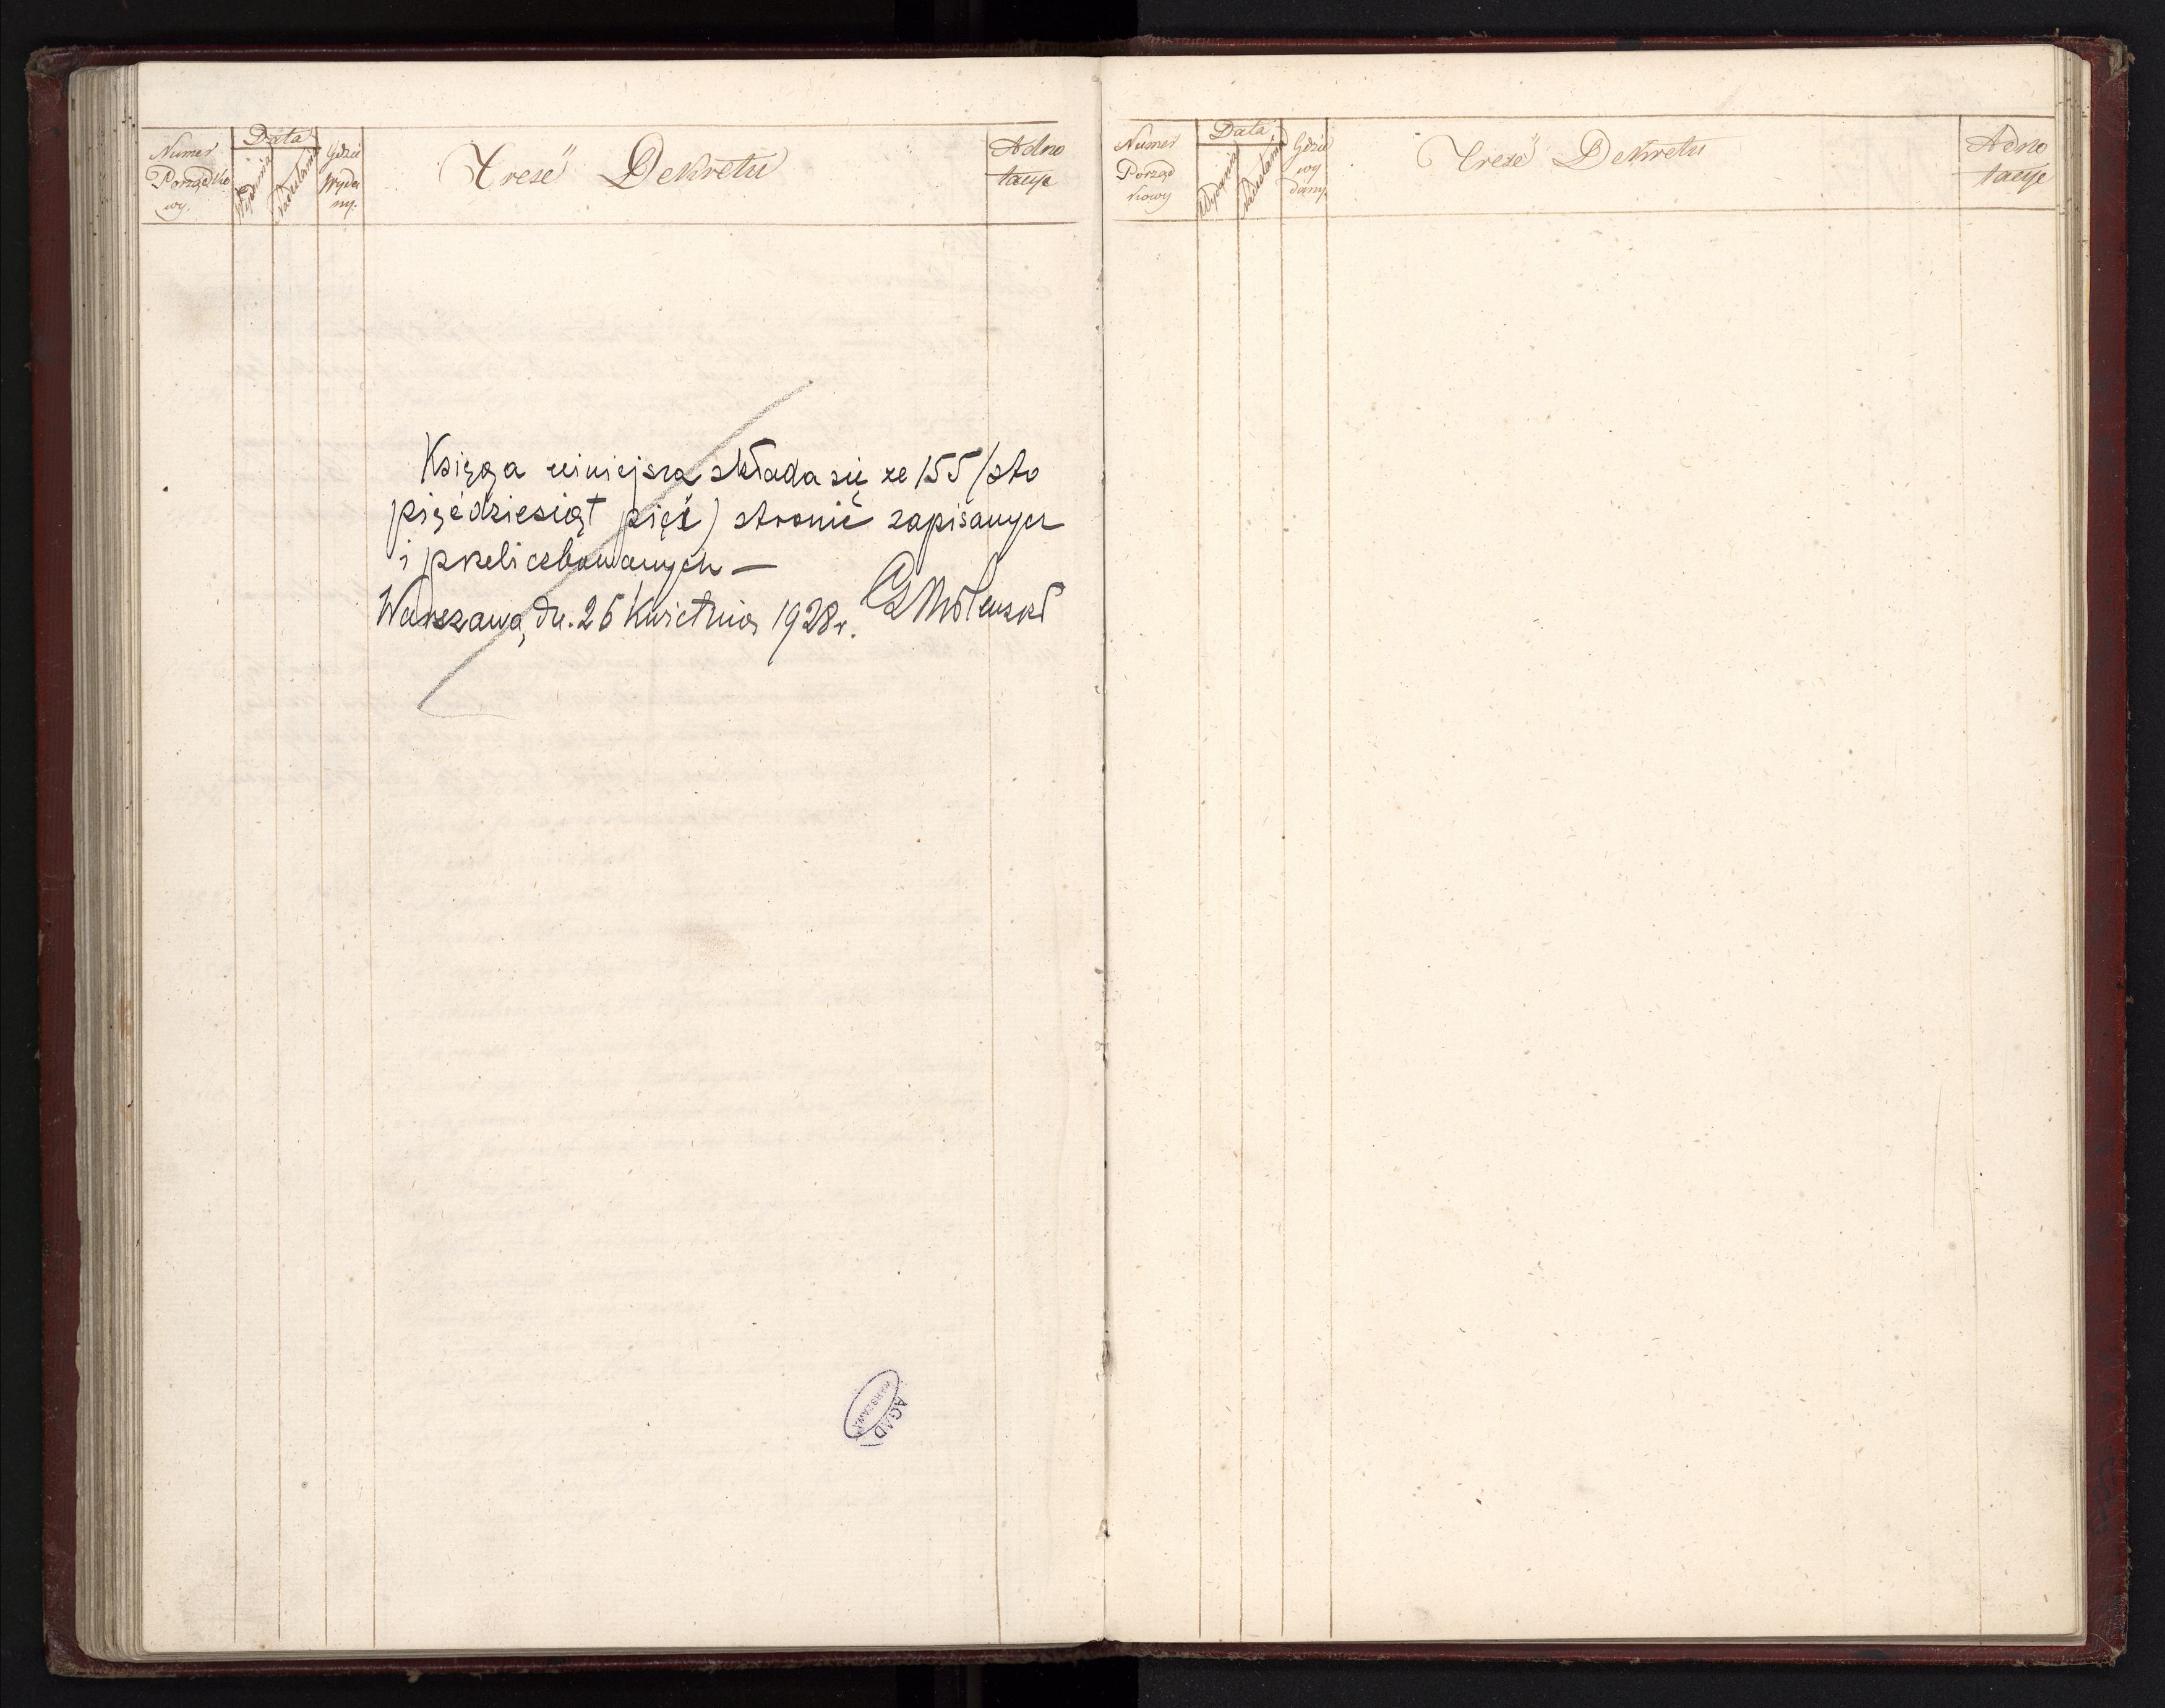 Numer
Porządko
wy.
Data
Wydania
Nadesłania
Gdzie
Wyda
ny.
Treść Dekretu
Adno
tacye
Księga niniejsza składa się ze 155 (sto
pięćdziesiąt pięć) stronic zapisanych
i przeliczbowanych —
Warszawa, dn. 26 Kwietnia 1928 r.
AGAD
WARSZAWA
Numer
Porząd
kowy
Data
Wydania
Nadesłania
Gdzie
wy
dany
Treść Dekretu
Adno
tacye